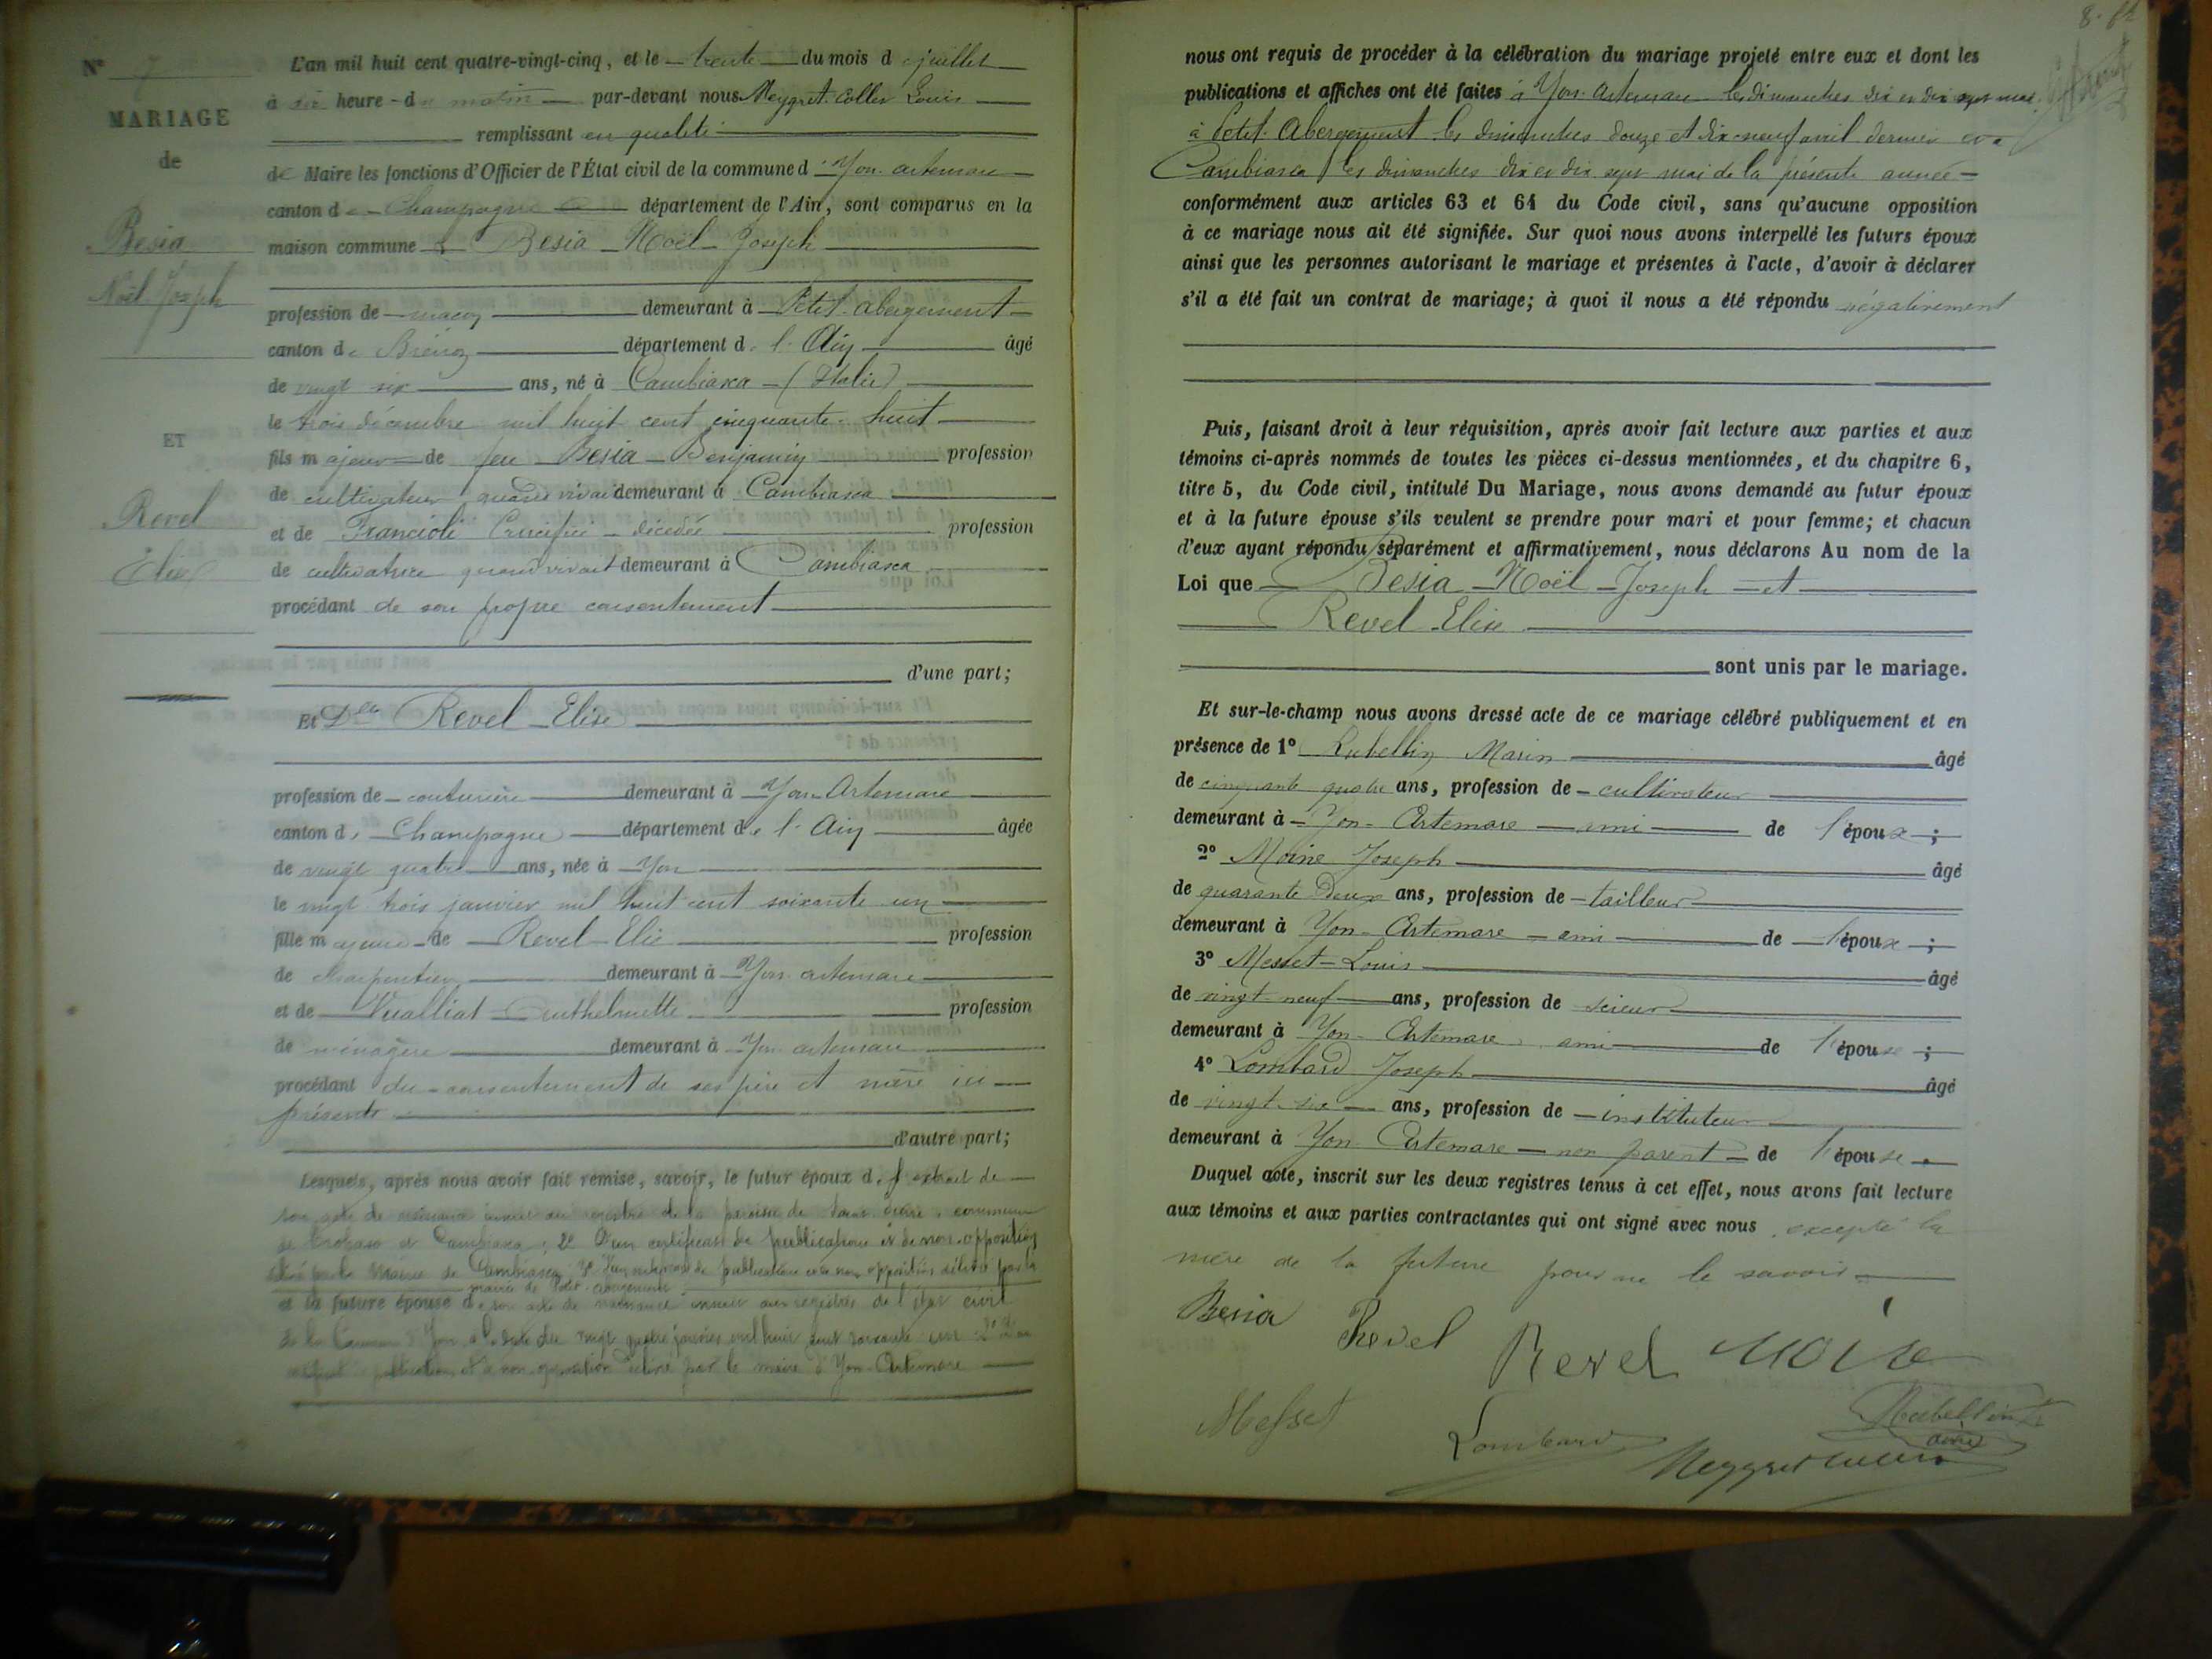 N° 7
MARIAGE
de
Besia
Noël Joseph
ET
Revel
Elise
L'an mil huit cent quatre-vingt-cinq, et le trente du mois d juillet
à six heure du matin par-devant nous Meygret Collet Louis
remplissant en qualité
de Maire les fonctions d'Officier de l'État civil de la commune d'Yon-artemare
canton de Champagne département de l'Ain, sont comparus en la
maison commune Besia Noël Joseph
profession de maçon demeurant à Petit-abergement
canton de Brénoz département de l'Ain âgé
de vingt six ans, né à Cambiasca (Italie)
le trois décembre mil huit cent cinquante-huit
fils majeur de feu Besia Benjamin profession
de cultivateur quand vivait demeurant à Cambiasca
et de Francioli Crucifixe décédée profession
de cultivatrice quand vivait demeurant à Cambiasca
procédant de son propre consentement
d'une part;
Et Dlle Revel Elise
profession de couturière demeurant à Yon-Artemare
canton de Champagne département de l'Ain âgée
de vingt quatre ans, née à Yon
le vingt trois janvier mil huit cent soixante un
fille majeure de Revel Elie profession
de charpentier demeurant à Yon-artemare
et de Vualliat Anthelmette profession
de ménagère demeurant à Yon artemare
procédant du consentement de ses père et mère ici
présents
d'autre part;
Lesquels, après nous avoir fait remise, savoir, le futur époux d. l'extrait de
son acte de naissance inscrit au registre de la paroisse de commune
de et Cambiasca; 2° D'un certificat de publication et de non-opposition
délivré par la Mairie de Cambiasca 3° D'un certificat de publication et de non opposition délivré par la
mairie de Petit abergement
et la future épouse de son acte de naissance inscrit aux registres de l'état civil
de la Commune d'Yon à la date du vingt quatre janvier mil huit cent soixante un 2° D'un
certificat de publication et de non-opposition délivré par le maire d'Yon-Artemare
8.
nous ont requis de procéder à la célébration du mariage projeté entre eux et dont les
publications et affiches ont été faites à Yon-Artemare les dimanches dix et dix sept mai
à Petit-Abergement les dimanches douze et dix-neuf avril dernier et à
Cambiasca les dimanches dix et dix sept mai de la présente année
conformément aux articles 63 et 64 du Code civil, sans qu'aucune opposition
à ce mariage nous ait été signifiée. Sur quoi nous avons interpellé les futurs époux
ainsi que les personnes autorisant le mariage et présentes à l'acte, d'avoir à déclarer
s'il a été fait un contrat de mariage; à quoi il nous a été répondu négativement
Puis, faisant droit à leur réquisition, après avoir fait lecture aux parties et aux
témoins ci-après nommés de toutes les pièces ci-dessus mentionnées, et du chapitre 6,
titre 5, du Code civil, intitulé Du Mariage, nous avons demandé au futur époux
et à la future épouse s'ils veulent se prendre pour mari et pour femme; et chacun
d'eux ayant répondu séparément et affirmativement, nous déclarons Au nom de la
Loi que Besia Noël Joseph et
Revel Elise
sont unis par le mariage.
Et sur-le-champ nous avons dressé acte de ce mariage célébré publiquement et en
présence de 1° Rubellin Marin âgé
de cinquante quatre ans, profession de cultivateur
demeurant à Yon-Artemare ami de l'époux;
2° Moine Joseph âgé
de quarante deux ans, profession de tailleur
demeurant à Yon-Artemare ami de l'époux;
3° Messet Louis âgé
de vingt-neuf ans, profession de scieur
demeurant à Yon-Artemare ami de l'épouse;
4° Lombard Joseph âgé
de vingt-six ans, profession de instituteur
demeurant à Yon-Artemare non parent de l'épouse.
Duquel acte, inscrit sur les deux registres tenus à cet effet, nous avons fait lecture
aux témoins et aux parties contractantes qui ont signé avec nous, excepté la
mère de la future pour ne le savoir
Besia Revel Revel Moine
Messet Lombard Rubellin
Meygret